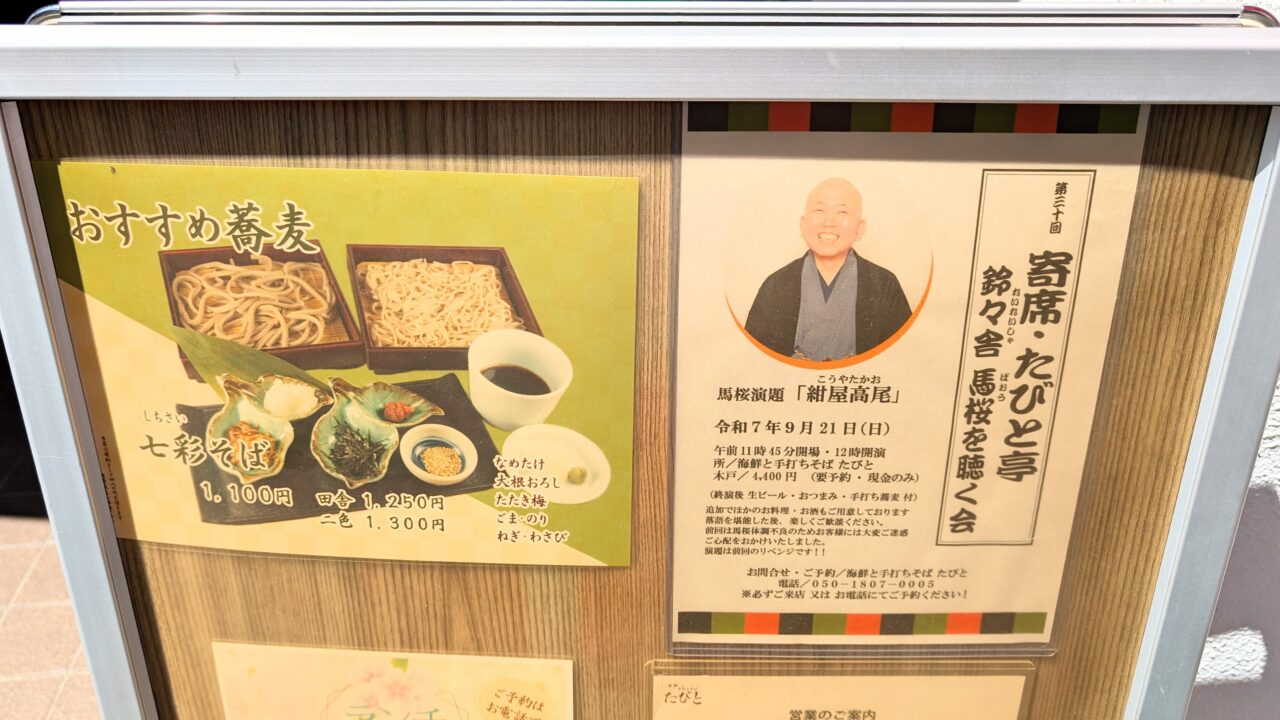 おすすめ蕎麦
しちさい
七彩そば
1,100円
田舎 1,250円
二色 1,300円
なめたけ
大根おろし
たたき梅
ごま・のり
ねぎ・わさび
第三十回
寄席・たびと亭
れいれいしゃ ばおう
鈴々舎 馬桜を聴く会
こうやたかお
馬桜演題「紺屋高尾」
令和7年9月21日(日)
午前11時45分開場・12時開演
所/海鮮と手打ちそば たびと
木戸/4,400円 (要予約・現金のみ)
(終演後 生ビール・おつまみ・手打ち蕎麦 付)
追加でほかのお料理・お酒もご用意しております
落語を堪能した後、楽しくご歓談ください。
前回は馬桜体調不良のためお客様には大変ご迷惑
ご心配をおかけいたしました。
演題は前回のリベンジです!!
お問合せ・ご予約/海鮮と手打ちそば たびと
電話/050-1807-0005
※必ずご来店 又は お電話にてご予約ください!
ランチ
ご予約は
お電話で
たびと
営業のご案内